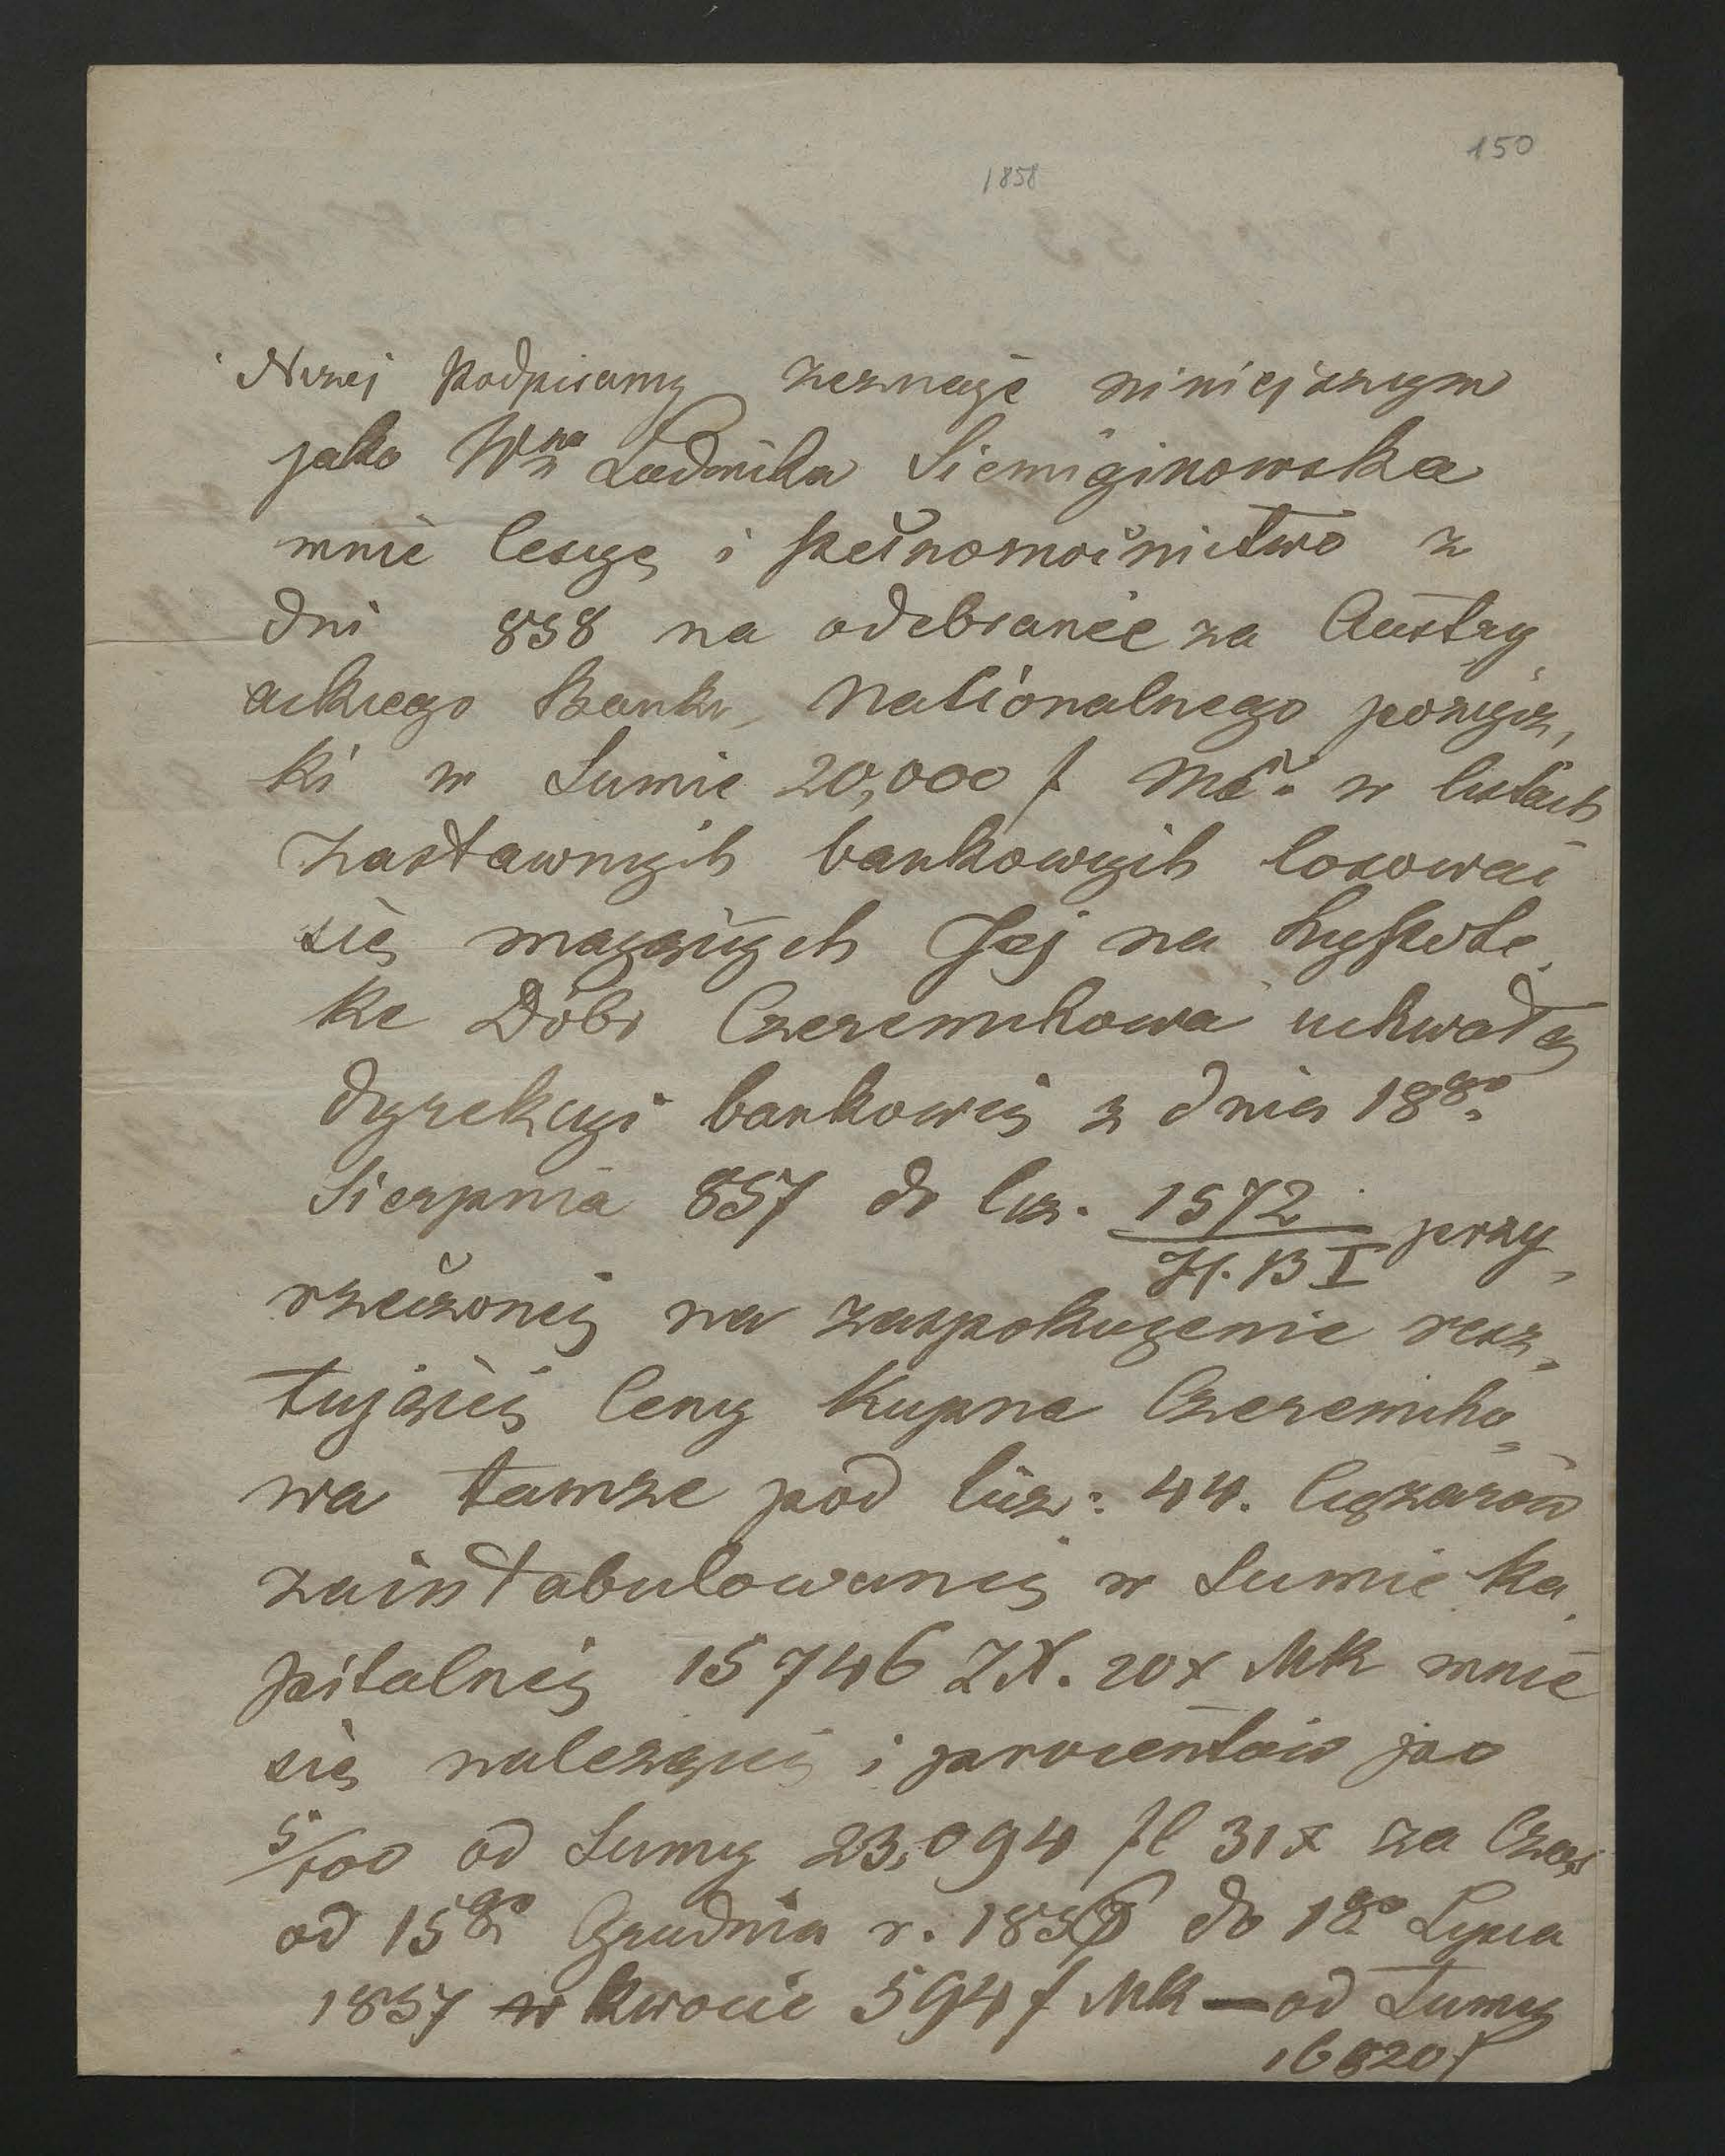 150
1858
Niżej Podpisany zeznaję niniejszym
jako Wna Ludwika Siemiginowska
mnie cesyę i pełnomocnictwo z
dni 858 na odebranie za Austry
ackiego Banku Nationalnego pożycz,
ki w Sumie 20,000 f Mk. w listach
zastawnych bankowych losować
się mających Jej na hypote,
kę Dóbr Czeremchowa uchwałą
dyrekcyi bankowej z dnia 18go
Sierpnia 857 do licz. 1572/H.B I przy,
rzeczonej na zaspokojenie resz,
tującej Ceny Kupna Czeremcho,
wa tamże pod licz: 44. Ciężarów
zaintabulowanej w Sumie ka,
pitalnej 15746 ZR. 20x MK mnie
się należącej i procentów po
5/100 od Sumy 23,094 fl 31x za Czas
od 15go Grudnia r. 1856 do 1go Lipca
1857 w kwocie 594 f MK — od Sumy
16820 f